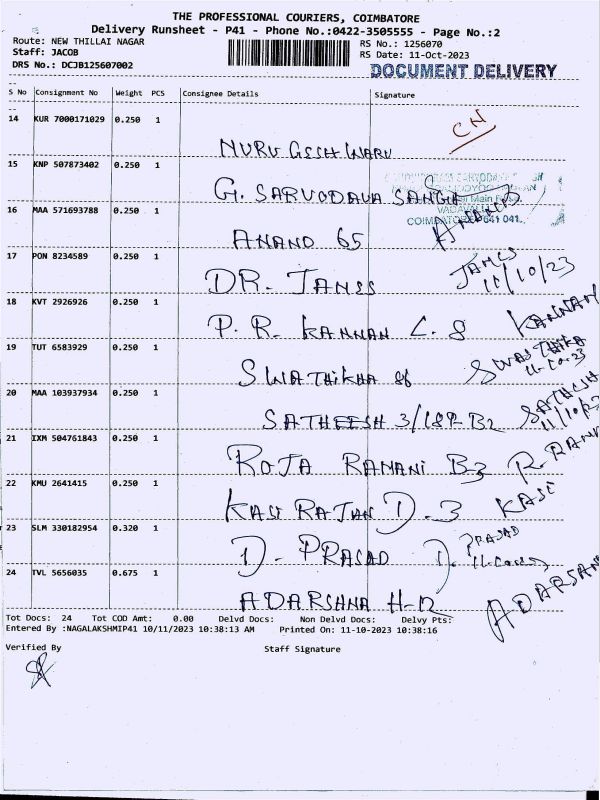 THE PROFESSIONAL COURIERS, COIMBATORE
Delivery Runsheet - P41 - Phone No.:0422-3505555 - Page No.:2
Route: NEW THILLAI NAGAR RS No.: 1256070
Staff: JACOB RS Date: 11-Oct-2023
DRS No.: DCJB125607002 DOCUMENT DELIVERY
S No Consignment No Weight PCS Consignee Details Signature
14 KUR 7000171029 0.250 1 CN
15 KNP 507873402 0.250 1 G. SARVODAYA SANGHA
16 MAA 571693788 0.250 1 ANAND 65 ANAND
COIMBATORE 641 041.
17 PON 8234589 0.250 1 DR. JAMES JAMES 11/10/23
18 KVT 2926926 0.250 1 P. R. KANNAN L. 8 KANNAN
19 TUT 6583929 0.250 1 SWATHIKHA 86 SWATHIKA
11-10-23
20 MAA 103937934 0.250 1 SATHEESH 3/189-B2 SATHESH
11/10/23
21 IXM 504761843 0.250 1 ROJA RAMANI B3
22 KMU 2641415 0.250 1 KASI RAJAN D-3 KASI
23 SLM 330182954 0.320 1 D. PRASAD D. PRASAD
24 TVL 5656035 0.675 1 ADARSHNA H-12 ADARSANA
Tot Docs: 24 Tot COD Amt: 0.00 Delvd Docs: Non Delvd Docs: Delvy Pts:
Entered By :NAGALAKSHMIP41 10/11/2023 10:38:13 AM Printed On: 11-10-2023 10:38:16
Verified By Staff Signature